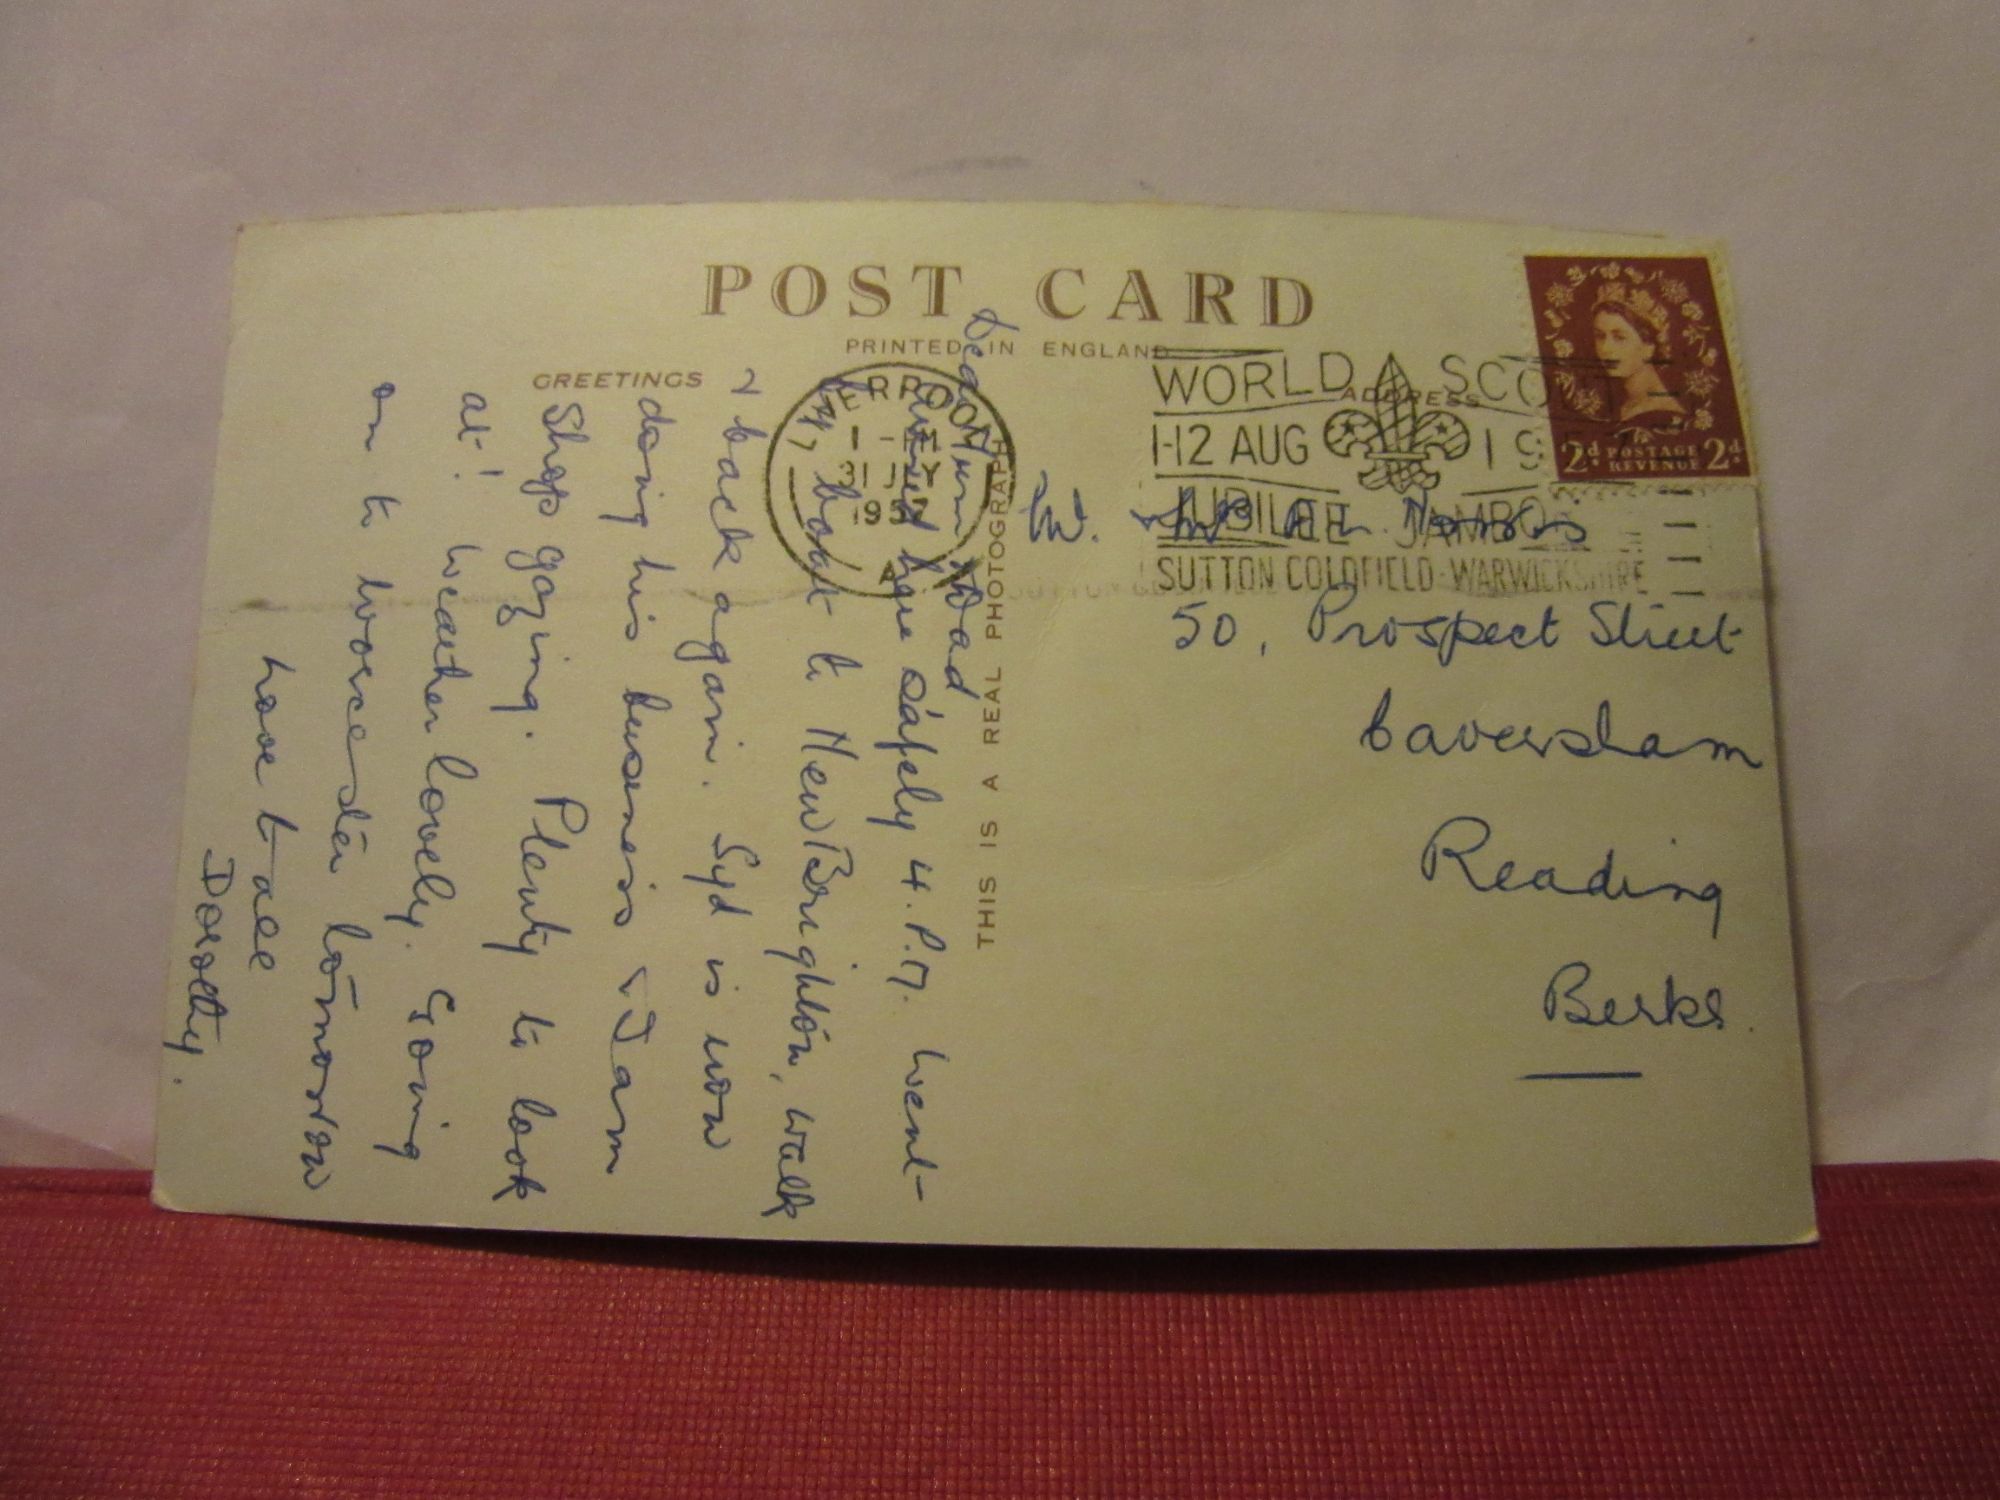 POST CARD
PRINTED IN ENGLAND
GREETINGS
ADDRESS
THIS IS A REAL PHOTOGRAPH
VERPOOL
31 JLY
1957
A
WORLD SCOU
1-12 AUG 19
JUBILEE JAMBO
SUTTON COLDFIELD · WARWICKSHIRE
2d POSTAGE REVENUE 2d
Dear Mum & Dad
Arrived here safely 4. P.M. Went
by boat to New Brighton, walk
& back again. Syd is now
doing his business & I am
Shop gazing. Plenty to look
at! Weather lovely. Going
on to Worcester tomorrow
Love to all
Dorothy.
Mr. & Mrs Norris
50, Prospect Street
Caversham
Reading
Berks.